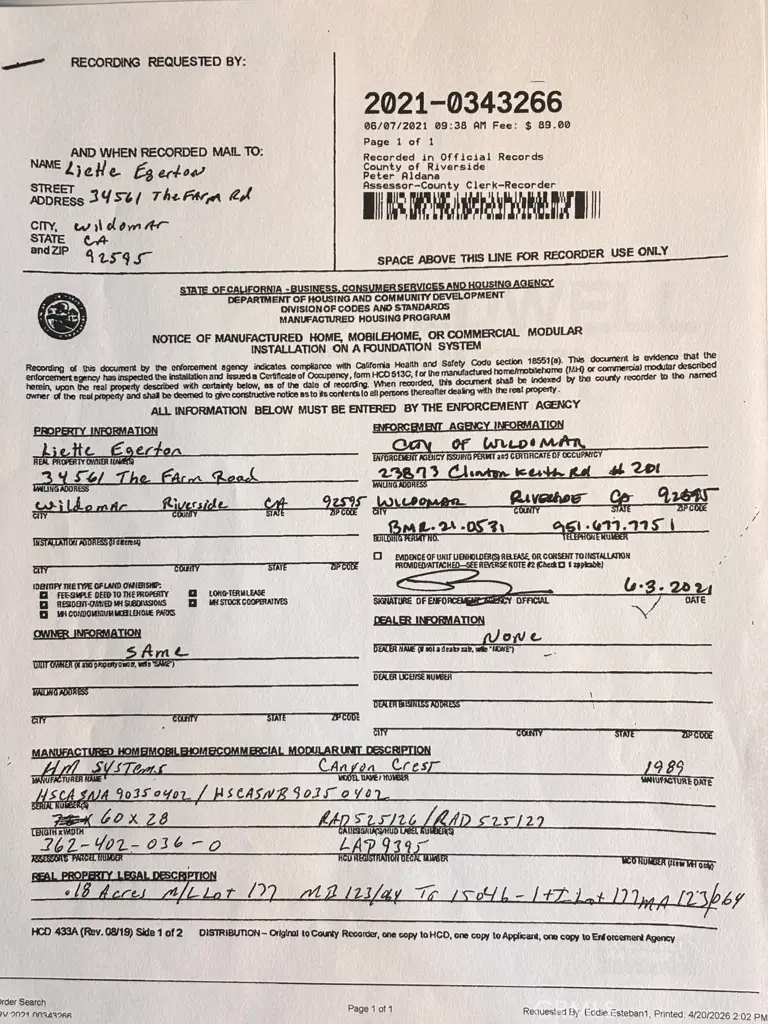 RECORDING REQUESTED BY:
AND WHEN RECORDED MAIL TO:
NAME Liette Egerton
STREET
ADDRESS 34561 The Farm Rd
CITY, Wildomar
STATE CA
and ZIP 92595
2021-0343266
06/07/2021 09:38 AM Fee: $ 89.00
Page 1 of 1
Recorded in Official Records
County of Riverside
Peter Aldana
Assessor-County Clerk-Recorder
SPACE ABOVE THIS LINE FOR RECORDER USE ONLY
STATE OF CALIFORNIA - BUSINESS, CONSUMER SERVICES AND HOUSING AGENCY
DEPARTMENT OF HOUSING AND COMMUNITY DEVELOPMENT
DIVISION OF CODES AND STANDARDS
MANUFACTURED HOUSING PROGRAM
NOTICE OF MANUFACTURED HOME, MOBILEHOME, OR COMMERCIAL MODULAR
INSTALLATION ON A FOUNDATION SYSTEM
Recording of this document by the enforcement agency indicates compliance with California Health and Safety Code section 18551(a). This document is evidence that the
enforcement agency has inspected the installation and issued a Certificate of Occupancy, form HCD 513C, for the manufactured home/mobilehome (MH) or commercial modular described
herein, upon the real property described with certainty below, as of the date of recording. When recorded, this document shall be indexed by the county recorder to the named
owner of the real property and shall be deemed to give constructive notice as to its contents to all persons thereafter dealing with the real property.
ALL INFORMATION BELOW MUST BE ENTERED BY THE ENFORCEMENT AGENCY
PROPERTY INFORMATION
Liette Egerton
REAL PROPERTY OWNER NAME(S)
34561 The Farm Road
MAILING ADDRESS
Wildomar Riverside CA 92595
CITY COUNTY STATE ZIP CODE
INSTALLATION ADDRESS (if different)
CITY COUNTY STATE ZIP CODE
IDENTIFY THE TYPE OF LAND OWNERSHIP:
FEE-SIMPLE DEED TO THE PROPERTY LONG-TERM LEASE
RESIDENT-OWNED MH SUBDIVISIONS MH STOCK COOPERATIVES
MH CONDOMINIUM MOBILEHOME PARKS
OWNER INFORMATION
SAME
UNIT OWNER (if also property owner, write "SAME")
MAILING ADDRESS
CITY COUNTY STATE ZIP CODE
ENFORCEMENT AGENCY INFORMATION
CITY OF WILDOMAR
ENFORCEMENT AGENCY ISSUING PERMIT and CERTIFICATE OF OCCUPANCY
23873 Clinton Keith Rd # 201
MAILING ADDRESS
WILDOMAR RIVERSIDE CA 92595
CITY COUNTY STATE ZIP CODE
BMR.21.0531 951.677.7751
BUILDING PERMIT NO. TELEPHONE NUMBER
EVIDENCE OF UNIT LIENHOLDER(S) RELEASE, OR CONSENT TO INSTALLATION
PROVIDED/ATTACHED—SEE REVERSE NOTE #2 (Check if applicable)
6.3.2021
SIGNATURE OF ENFORCEMENT AGENCY OFFICIAL DATE
DEALER INFORMATION
NONE
DEALER NAME (if not a dealer sale, write "NONE")
DEALER LICENSE NUMBER
DEALER BUSINESS ADDRESS
CITY COUNTY STATE ZIP CODE
MANUFACTURED HOME/MOBILEHOME/COMMERCIAL MODULAR UNIT DESCRIPTION
HM Systems Canyon Crest 1989
MANUFACTURER NAME MODEL NAME / NUMBER MANUFACTURE DATE
HSCASNA90350402 / HSCASNB90350402
SERIAL NUMBER(S)
60 x 28 RAD525126 / RAD 525127
LENGTH x WIDTH CAL INSIGNIA(S)/HUD LABEL NUMBER(S)
362-402-036-0 LAP9395
ASSESSOR'S PARCEL NUMBER HCD REGISTRATION DECAL NUMBER MCO NUMBER (New MH only)
REAL PROPERTY LEGAL DESCRIPTION
.18 Acres M/L Lot 177 MB 123/064 Tr 15046-1 Lot 177 MB 123/064
HCD 433A (Rev. 08/19) Side 1 of 2 DISTRIBUTION – Original to County Recorder, one copy to HCD, one copy to Applicant, one copy to Enforcement Agency
Order Search
RV 2021 00343266
Page 1 of 1
Requested By: Eddie.Esteban1, Printed: 4/20/2026 2:02 PM